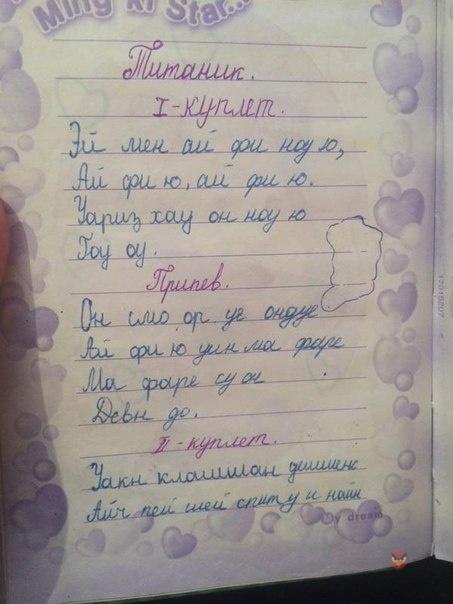 Ming ki Star...
Титаник.
I-куплет.
Эй мен ай фи ноу ю,
Ай фи ю, ай фи ю.
Уариз хау он ноу ю
Гоу оу.
Припев.
Он смо ор уе ондуе
Ай фи ю уин ма фаре
Ма фаре су он
Девн до.
II-куплет.
Уакн клашшан
Айч пей шей спиту и найн
My dream
17015207